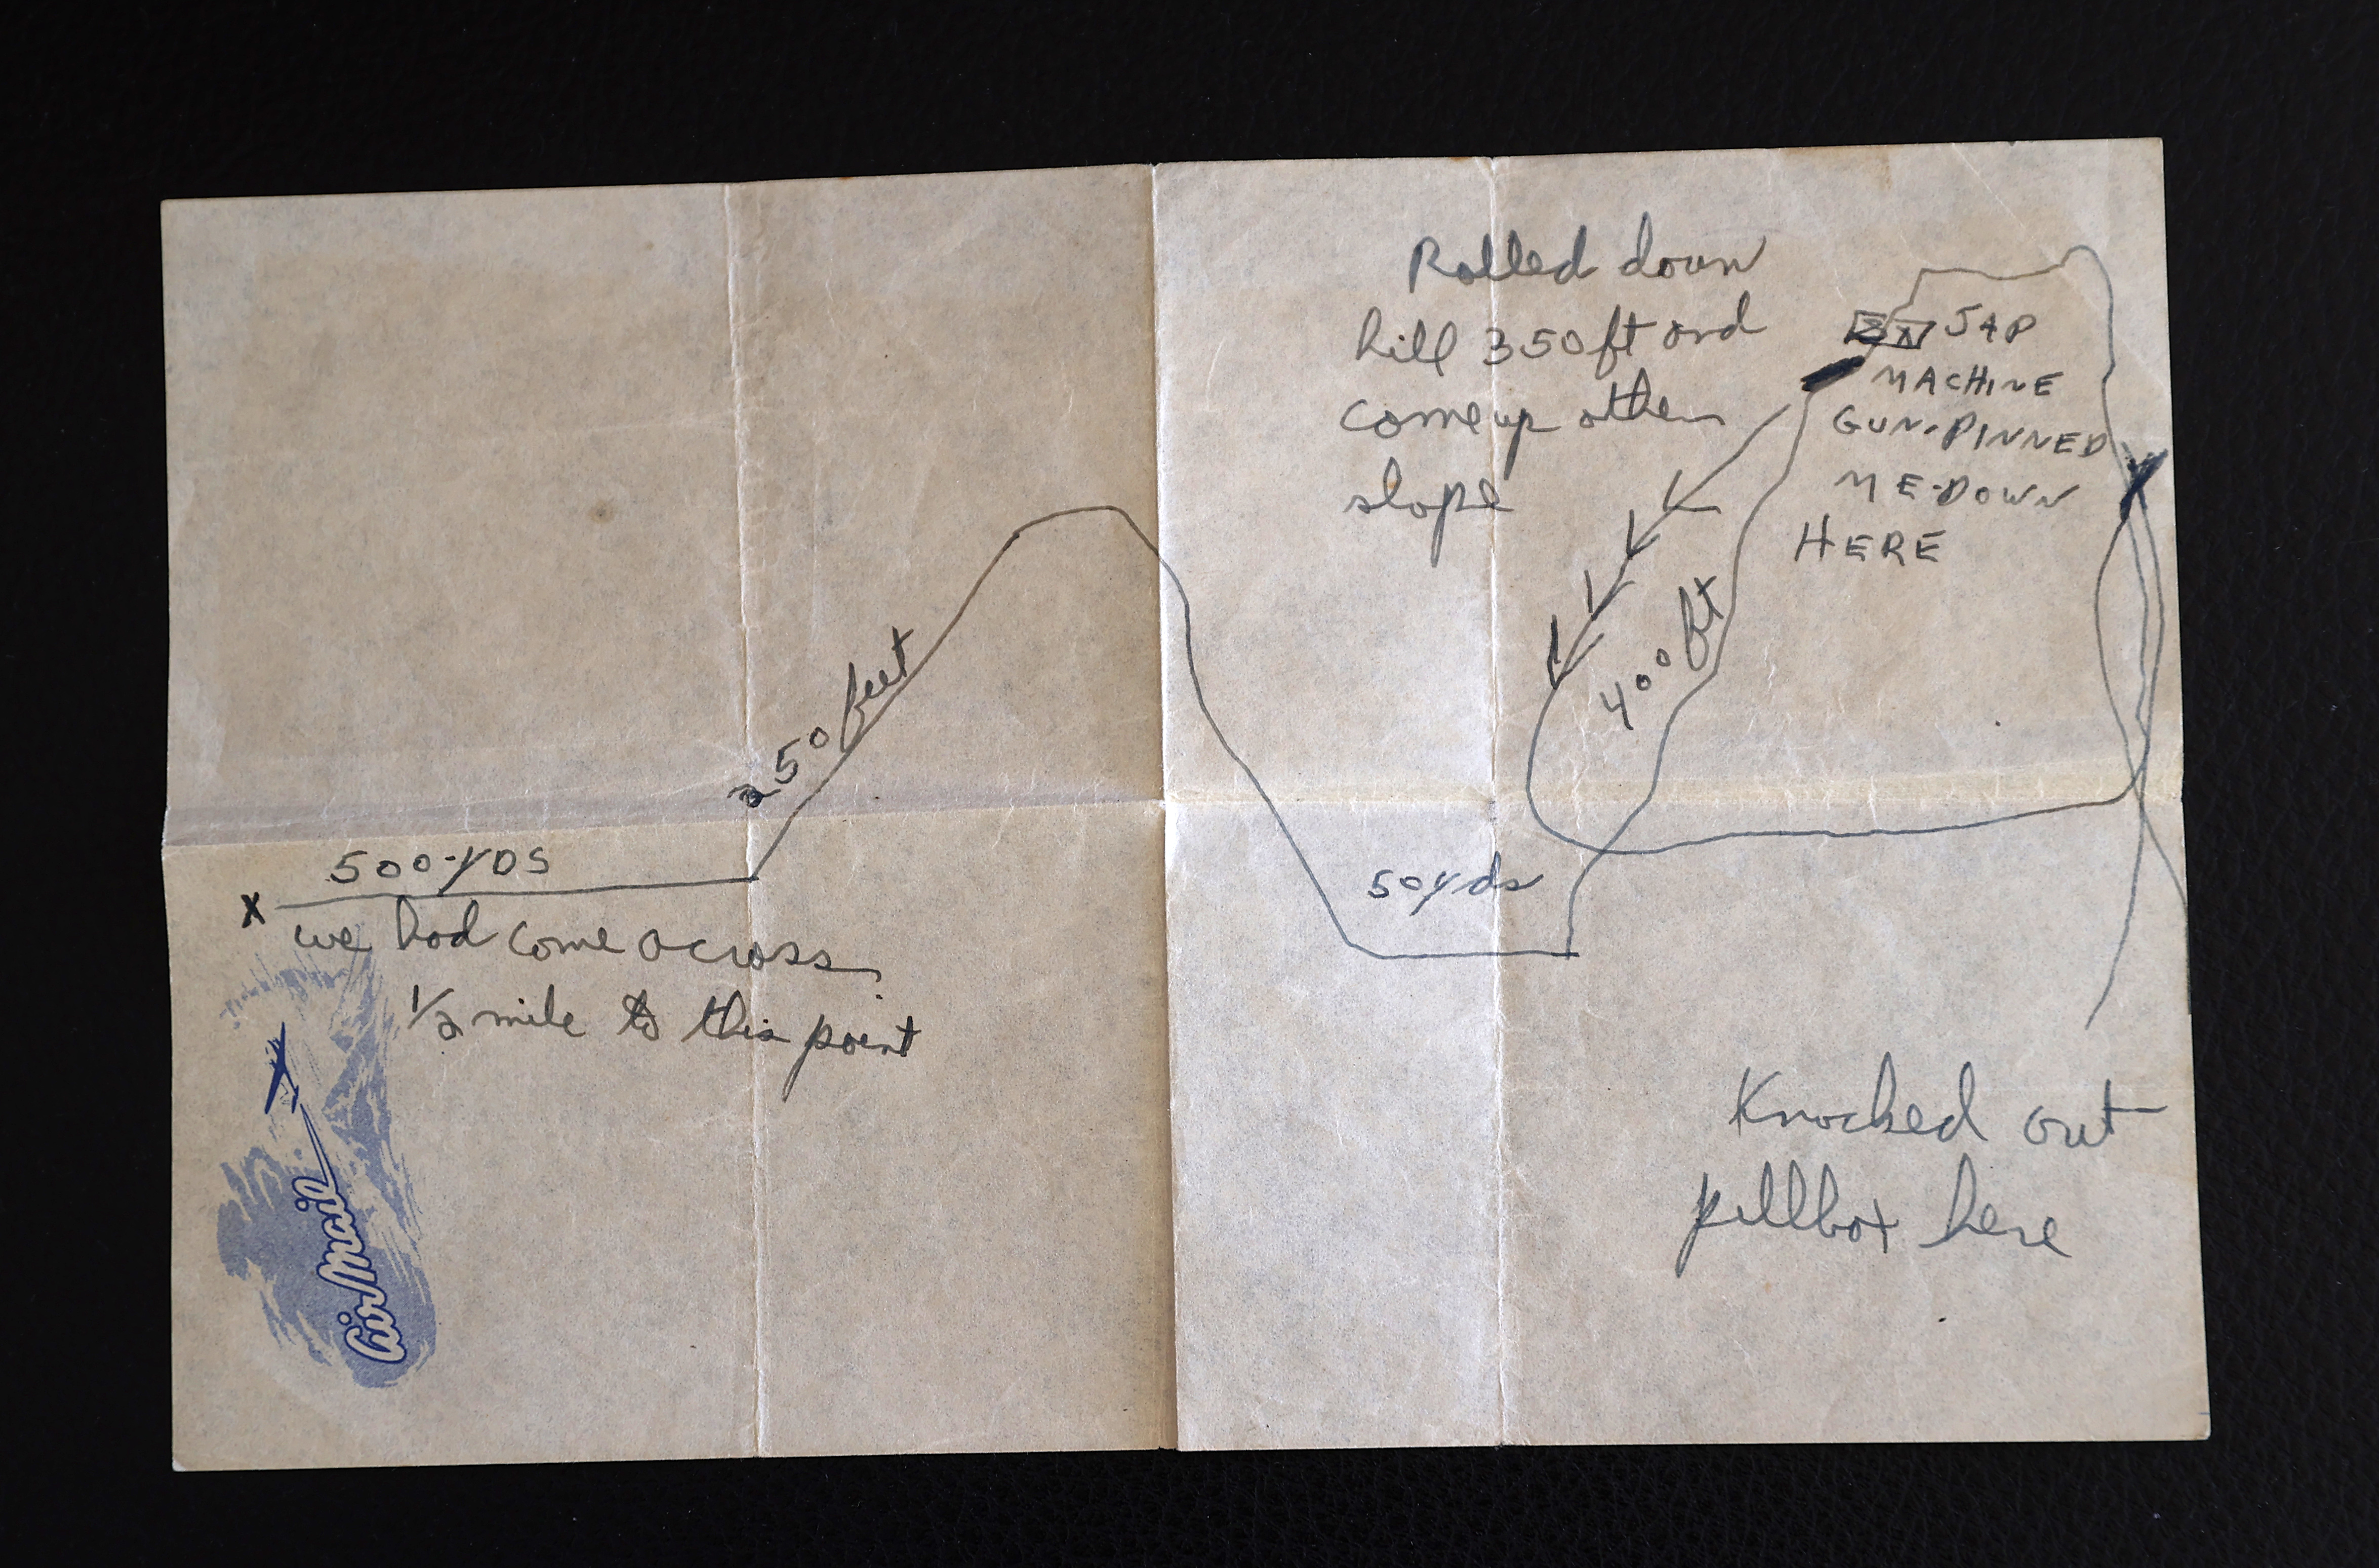 Rolled down
hill 350 ft and
come up other
slope
JAP
MACHINE
GUN-PINNED
ME-DOWN
HERE
250 feet
400 ft
500-YDS
X
we had come across
1/2 mile to this point
50 yds
Knocked out
pillbox here
Air Mail